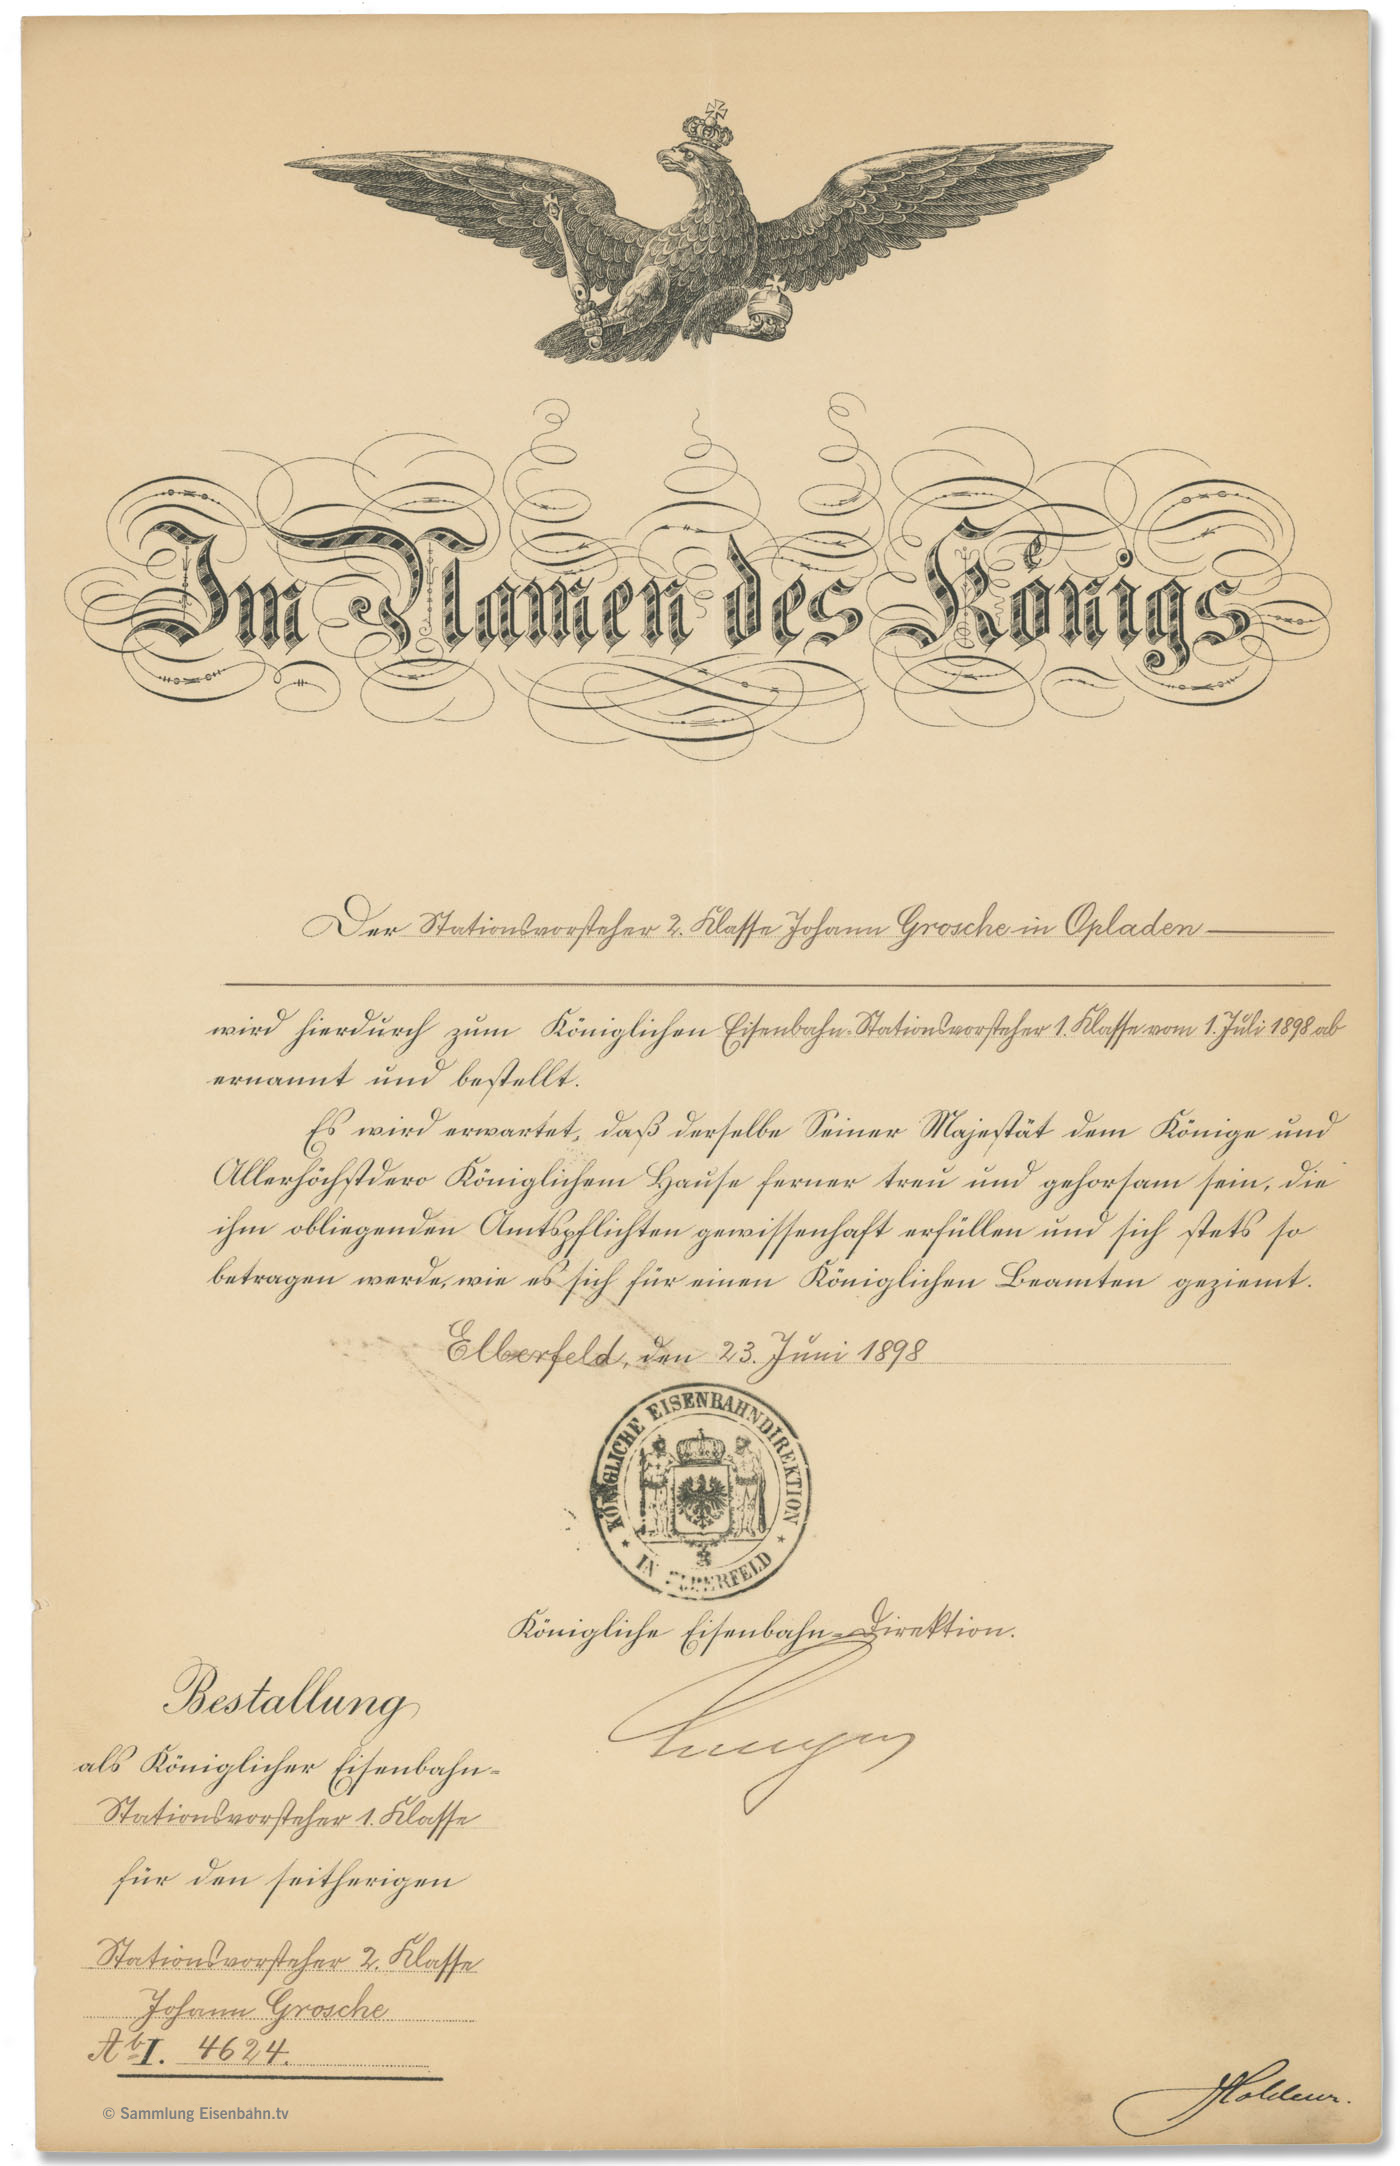 Im Namen des Königs
Der Stationsvorsteher 2. Klasse Johann Grosche in Opladen
wird hierdurch zum Königlichen Eisenbahn-Stationsvorsteher 1. Klasse vom 1. Juli 1898 ab
ernannt und bestellt.
Es wird erwartet, daß derselbe Seiner Majestät dem Könige und
Allerhöchstdero Königlichem Hause ferner treu und gehorsam sein, die
ihm obliegenden Amtspflichten gewissenhaft erfüllen und sich stets so
betragen werde, wie es sich für einen Königlichen Beamten geziemt.
Elberfeld, den 23. Juni 1898
KÖNIGLICHE EISENBAHNDIREKTION
* IN ELBERFELD *
Königliche Eisenbahn-Direktion.
Bestallung
als Königlicher Eisenbahn-
Stationsvorsteher 1. Klasse
für den seitherigen
Stationsvorsteher 2. Klasse
Johann Grosche
A b I. 4624.
© Sammlung Eisenbahn.tv